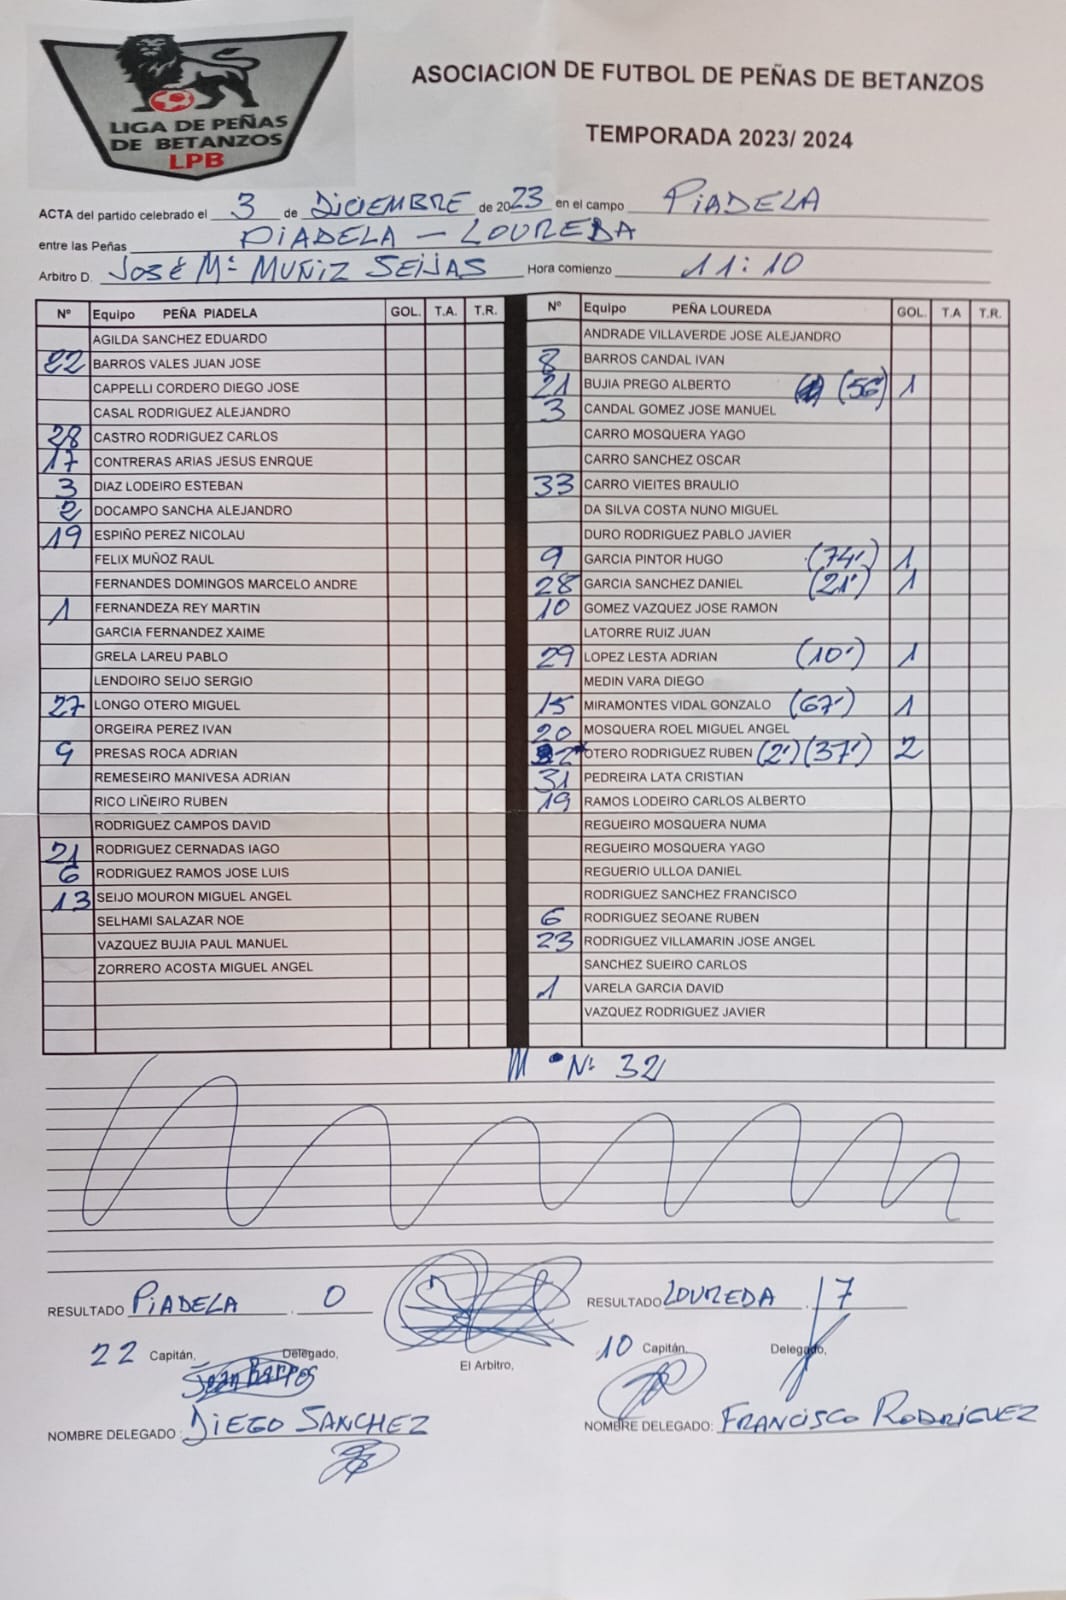 LIGA DE PEÑAS
DE BETANZOS
LPB
ASOCIACION DE FUTBOL DE PEÑAS DE BETANZOS
TEMPORADA 2023/ 2024
ACTA del partido celebrado el 3 de DICIEMBRE de 2023 en el campo PIADELA
entre las Peñas PIADELA - LOUREDA
Arbitro D. JOSÉ Mª MUÑIZ SEIJAS Hora comienzo 11:10
Nº Equipo PEÑA PIADELA GOL. T.A. T.R.
AGILDA SANCHEZ EDUARDO
22 BARROS VALES JUAN JOSE
CAPPELLI CORDERO DIEGO JOSE
CASAL RODRIGUEZ ALEJANDRO
28 CASTRO RODRIGUEZ CARLOS
17 CONTRERAS ARIAS JESUS ENRQUE
3 DIAZ LODEIRO ESTEBAN
2 DOCAMPO SANCHA ALEJANDRO
19 ESPIÑO PEREZ NICOLAU
FELIX MUÑOZ RAUL
FERNANDES DOMINGOS MARCELO ANDRE
1 FERNANDEZA REY MARTIN
GARCIA FERNANDEZ XAIME
GRELA LAREU PABLO
LENDOIRO SEIJO SERGIO
27 LONGO OTERO MIGUEL
ORGEIRA PEREZ IVAN
9 PRESAS ROCA ADRIAN
REMESEIRO MANIVESA ADRIAN
RICO LIÑEIRO RUBEN
RODRIGUEZ CAMPOS DAVID
21 RODRIGUEZ CERNADAS IAGO
6 RODRIGUEZ RAMOS JOSE LUIS
13 SEIJO MOURON MIGUEL ANGEL
SELHAMI SALAZAR NOE
VAZQUEZ BUJIA PAUL MANUEL
ZORRERO ACOSTA MIGUEL ANGEL
Nº Equipo PEÑA LOUREDA GOL. T.A T.R.
ANDRADE VILLAVERDE JOSE ALEJANDRO
8 BARROS CANDAL IVAN
21 BUJIA PREGO ALBERTO (56') 1
3 CANDAL GOMEZ JOSE MANUEL
CARRO MOSQUERA YAGO
CARRO SANCHEZ OSCAR
33 CARRO VIEITES BRAULIO
DA SILVA COSTA NUNO MIGUEL
DURO RODRIGUEZ PABLO JAVIER
9 GARCIA PINTOR HUGO (74') 1
28 GARCIA SANCHEZ DANIEL (21') 1
10 GOMEZ VAZQUEZ JOSE RAMON
LATORRE RUIZ JUAN
29 LOPEZ LESTA ADRIAN (10') 1
MEDIN VARA DIEGO
15 MIRAMONTES VIDAL GONZALO (67') 1
20 MOSQUERA ROEL MIGUEL ANGEL
OTERO RODRIGUEZ RUBEN (2') (37') 2
31 PEDREIRA LATA CRISTIAN
19 RAMOS LODEIRO CARLOS ALBERTO
REGUEIRO MOSQUERA NUMA
REGUEIRO MOSQUERA YAGO
REGUERIO ULLOA DANIEL
RODRIGUEZ SANCHEZ FRANCISCO
6 RODRIGUEZ SEOANE RUBEN
23 RODRIGUEZ VILLAMARIN JOSE ANGEL
SANCHEZ SUEIRO CARLOS
1 VARELA GARCIA DAVID
VAZQUEZ RODRIGUEZ JAVIER
Nº 32
RESULTADO PIADELA 0 RESULTADO LOUREDA 7
22 Capitán, Delegado, El Arbitro, 10 Capitán, Delegado,
Juan Barros
NOMBRE DELEGADO: DIEGO SANCHEZ NOMBRE DELEGADO: FRANCISCO RODRÍGUEZ